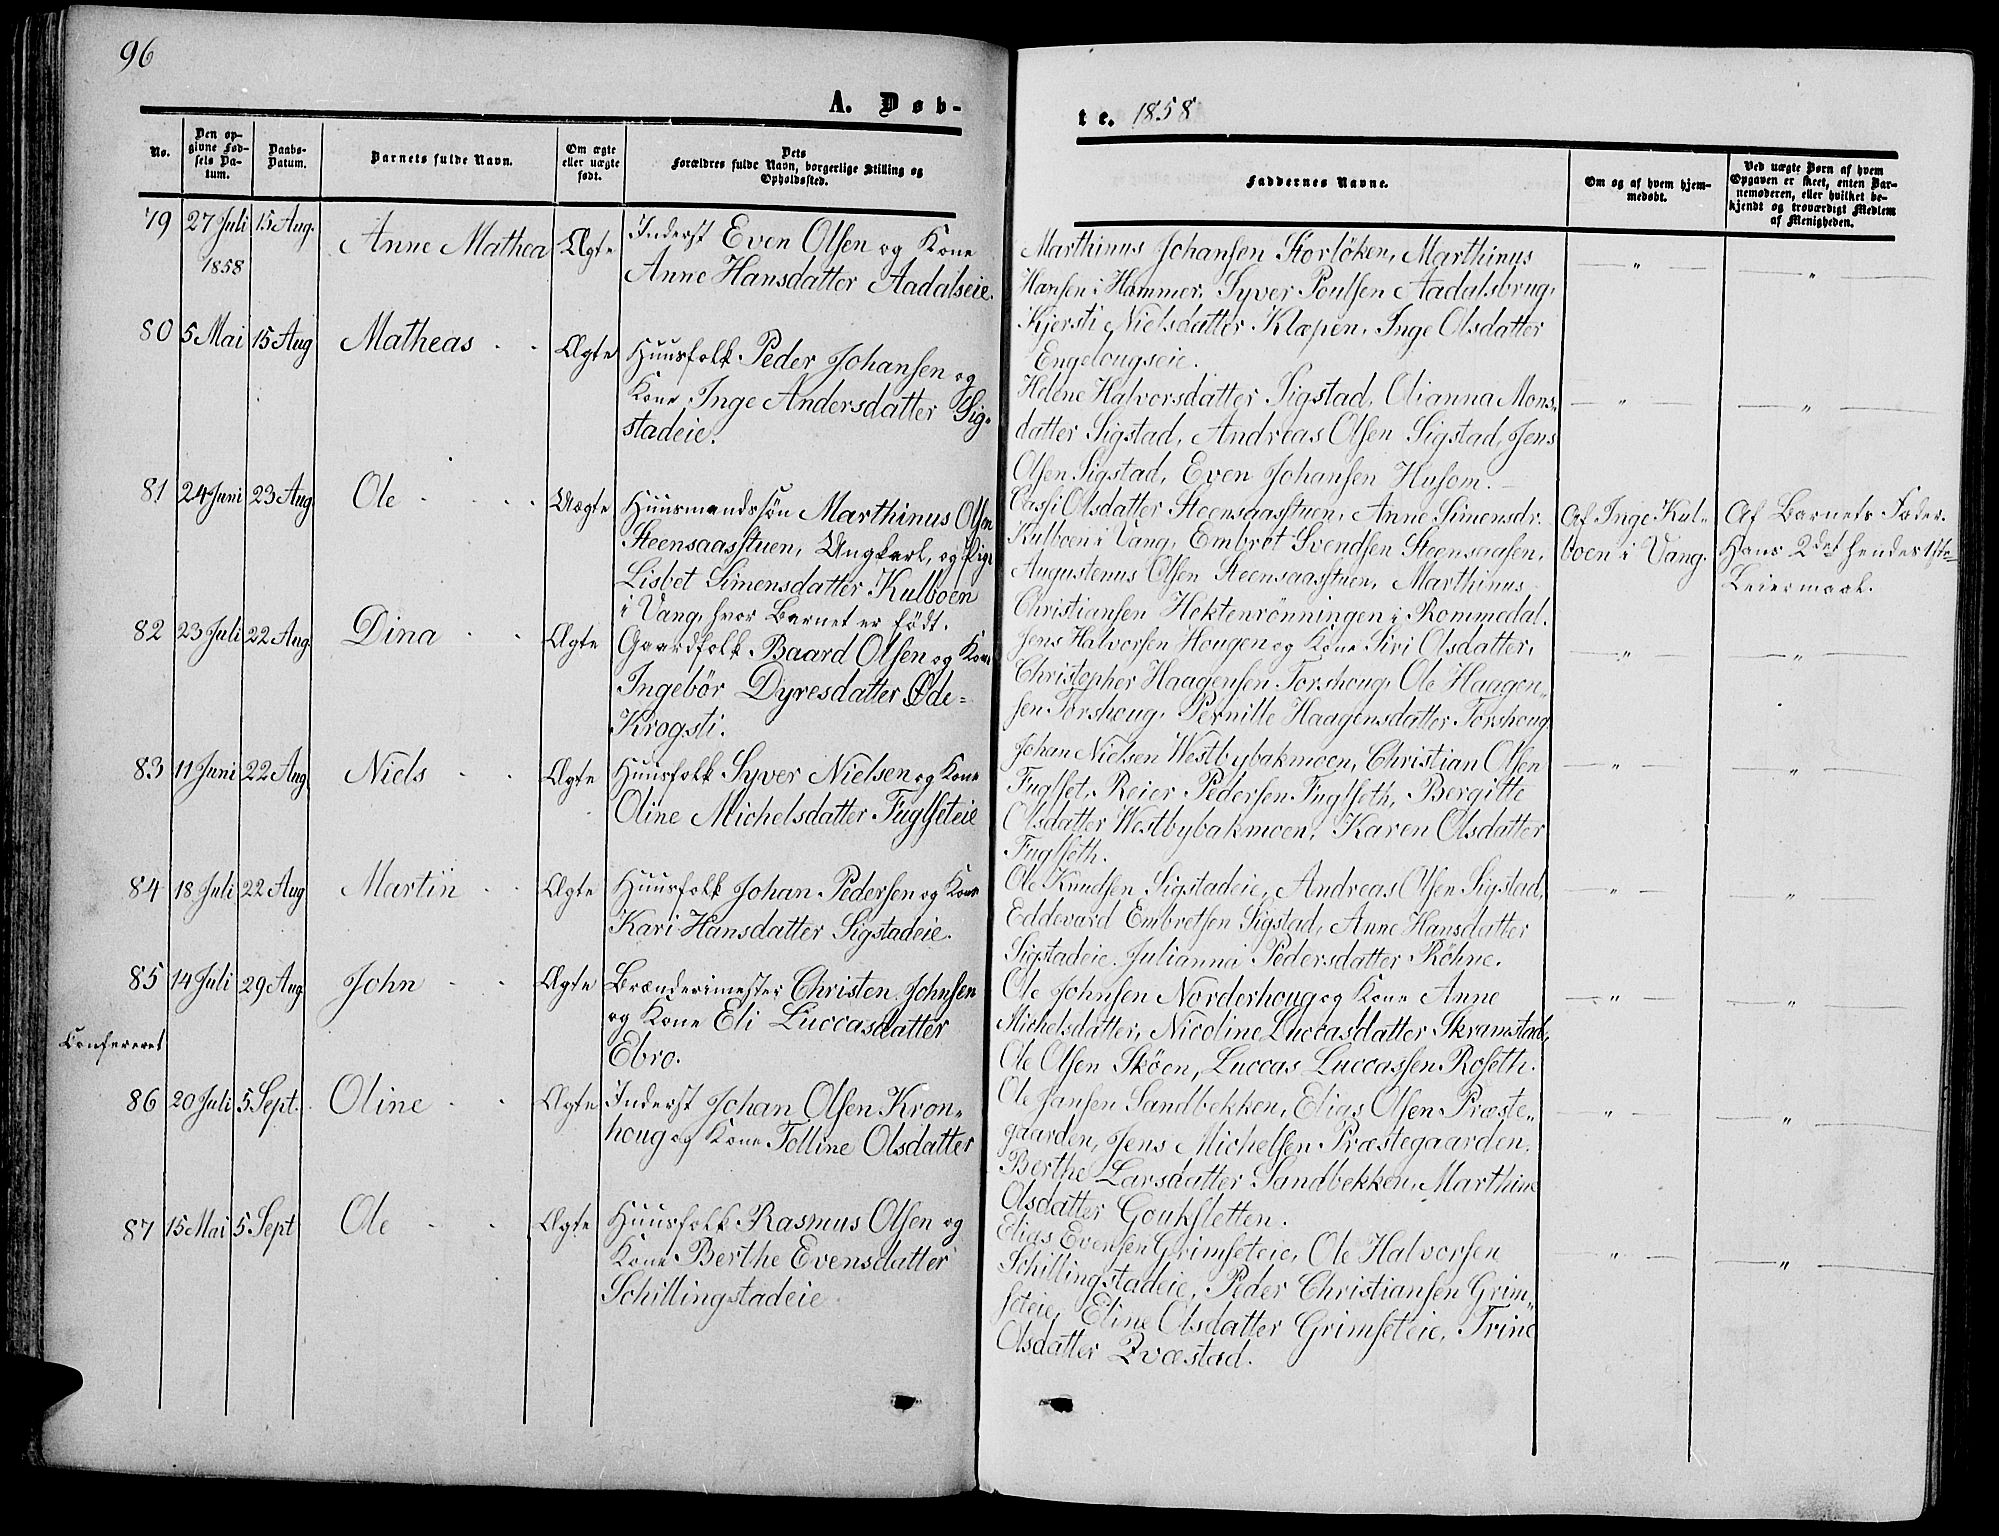 96
A. Døb-
No.
Den op-
givne Fød-
sels Da-
tum.
Daabs-
Datum.
Barnets fulde Navn.
Om ægte
eller uægte
født.
Dets
Forældres fulde Navn, borgerlige Stilling og
Opholdssted.
79 27 Juli 15 Aug. Anne Mathea Ægte Inderst Even Olsen og Kone
1858 Anne Hansdatter Aadalseie.
80 5 Mai 15 Aug Matheas - - Ægte Huusfolk Peder Johansen og
Kone Inge Andersdatter Sig-
stadeie.
81 24 Juni 23 Aug Ole - - - - Uægte Huusmandssön Marthinus Olsen
Steensaasstuen, Ungkarl, og Pige
Lisbet Simensdatter Kulboen
i Vang, hvor Barnet er födt.
82 23 Juli 22 Aug. Dina - - Ægte Gaardfolk Baard Olsen og Kone
Ingebör Dyresdatter Øde-
Krogsti.
83 11 Juni 22 Aug Niels - - Ægte Huusfolk Syver Nielsen og Kone
Oline Michelsdatter Fuglseteie
84 18 Juli 22 Aug Martin - - Ægte Huusfolk Johan Pedersen og Kone
Kari Hansdatter Sigstadeie.
85 14 Juli 29 Aug John - - Ægte Brænderimester Christen Johnsen
og Kone Eli Luccasdatter
Confereret
Ebro.
86 20 Juli 5 Sept. Oline - - Ægte Inderst Johan Olsen Kron-
houg og Kone Tolline Olsdatter
87 15 Mai 5 Sept Ole - - Ægte Huusfolk Rasmus Olsen og
Kone Berthe Evensdatter
Schillingstadeie
te. 1858
Faddernes Navne.
Om og af hvem hjem-
medøbt.
Ved uægte Børn af hvem
Opgaven er skeet, enten Bar-
nemoderen, eller hvilket be-
kjendt og troværdigt Medlem
af Menigheden.
Marthinus Johansen Storlöken, Marthinus
Hansen i Hammer, Syver Poulsen Aadalsbrug,
Kjersti Nielsdatter Klæpen, Inge Olsdatter
Engelougseie.
Helene Halvorsdatter Sigstad, Olianna Mons-
datter Sigstad, Andreas Olsen Sigstad, Jens
Olsen Sigstad, Even Johansen Husom.
Cassi Olsdatter Steensaasstuen, Anne Simensdr.
Kulboen i Vang, Embret Svendsen Steensaasen,
Augustenus Olsen Steensaasstuen, Marthinus
Christiansen Hektenrönningen i Rommedal.
Af Inge Kul-
boen i Vang.
Af Barnets Fader.
Hans 2det hendes 1ste
Leiermaal.
Jens Halvorsen Hougen og Kone Siri Olsdatter,
Christopher Haagensen Torshoug, Ole Haagen-
sen Torshoug, Pernille Haagensdatter Torshoug.
Johan Nielsen Westbybakmoen, Christian Olsen
Fuglset, Reier Pedersen Fuglseth, Bergitte
Olsdatter Westbybakmoen, Karen Olsdatter
Fuglseth.
Ole Knudsen Sigstadeie, Andreas Olsen Sigstad,
Eddevard Embretsen Sigstad, Anne Hansdatter
Sigstadeie, Julianna Pedersdatter Röhne.
Ole Johnsen Norderhoug og Kone Anne
Michelsdatter, Nicoline Luccasdatter Skramstad,
Ole Olsen Sköen, Luccas Luccassen Roseth.
Ole Jansen Sandbekken, Elias Olsen Præste-
gaarden, Jens Michelsen Præstegaarden,
Berthe Larsdatter Sandbekken, Marthine
Olsdatter Goukstetten.
Elias Evensen Grimseteie, Ole Halvorsen
Schillingstadeie, Peder Christiansen Grim-
seteie, Eline Olsdatter Grimseteie, Trine
Olsdatter Qvæstad.